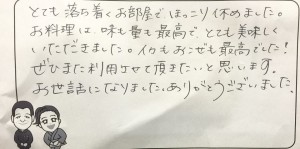 とても落ち着くお部屋でほっこり休めました。
お料理は、味も量も最高で、とても美味しく
いただきました。イカもおこぜも最高でした!
ぜひまた利用させて頂きたいと思います。
お世話になりました。ありがとうございました。